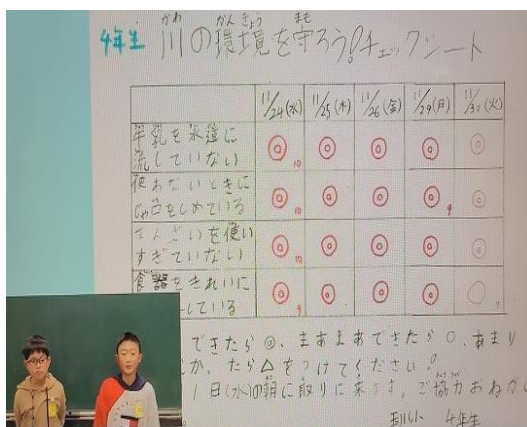 4年生 川の環境を守ろう!チェックシート
かわ かんきょう まも
11/24(水) 11/25(木) 11/26(金) 11/29(月) 11/30(火)
牛乳を水道に
流していない
10
使わないときに
じゃ口をしめている
10 9
せんざいを使い
すぎていない
10
食器をきれいに
している
9
できたら◎、まあまあできたら○、あまり
たら△をつけてください!
1日(水)の朝に取りに来ます。ご協力おねが
4年生